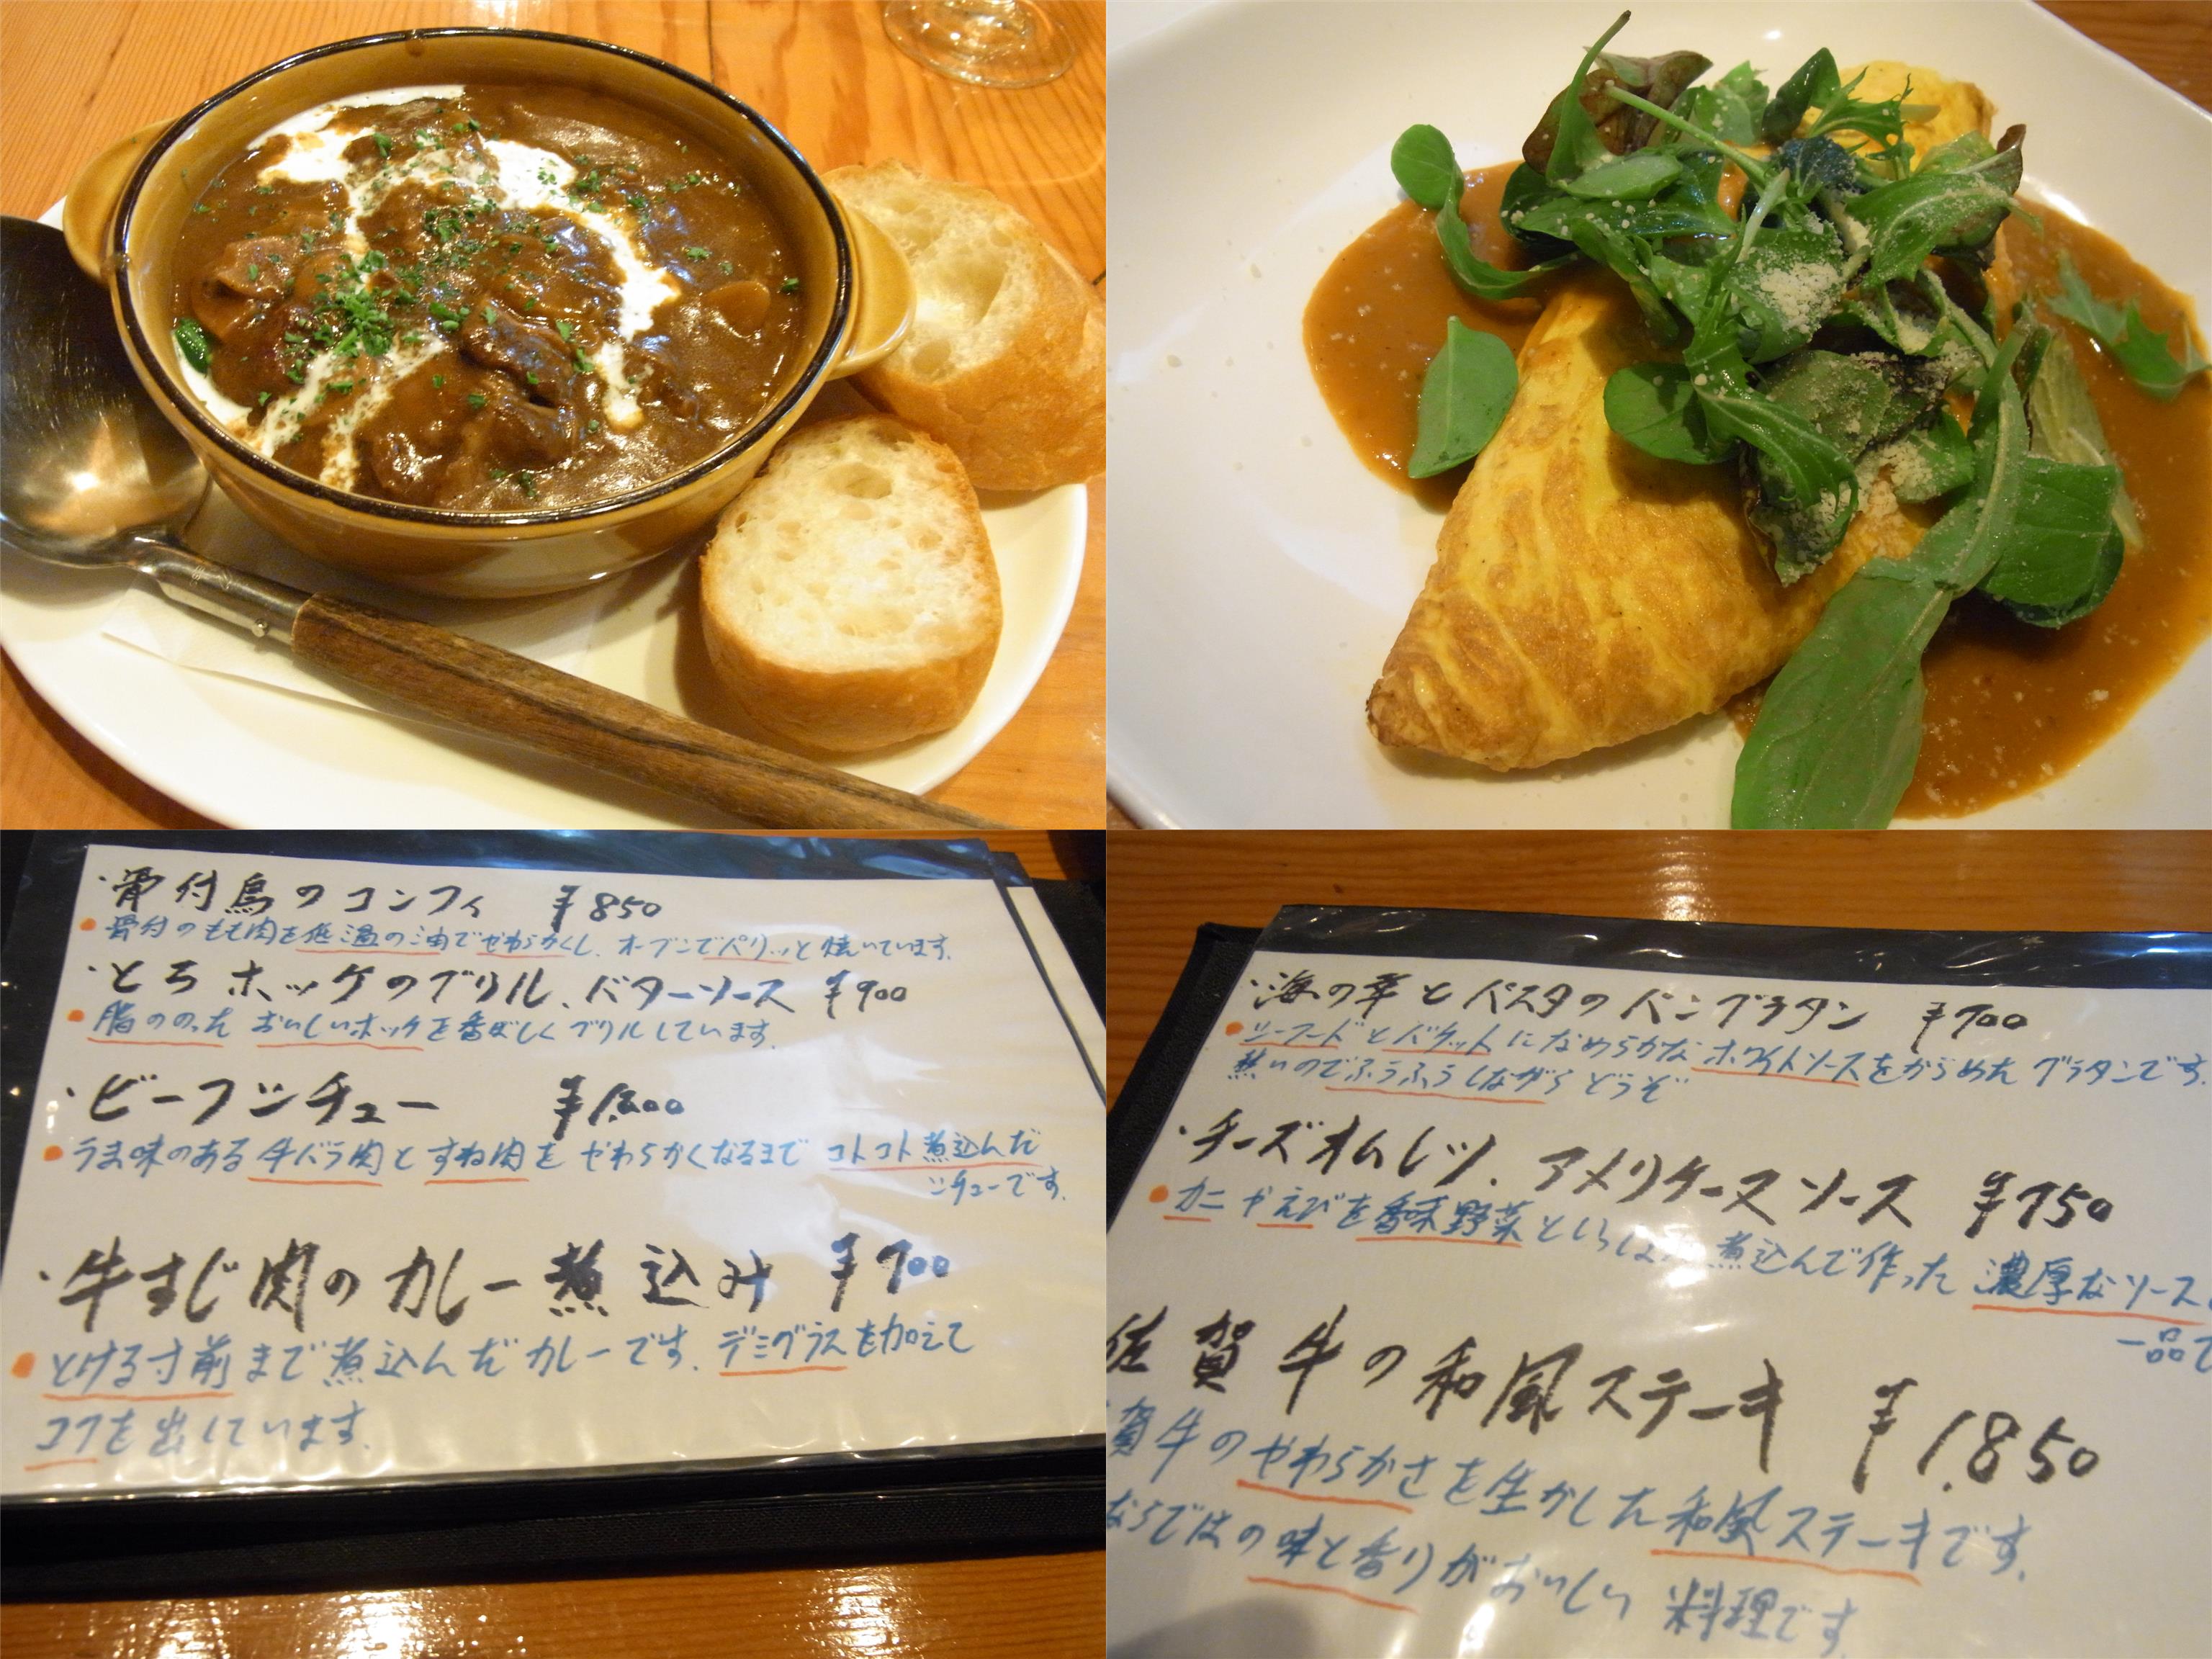 ・骨付鳥のコンフィ ¥850
骨付のもも肉を低温の油でやわらかくし、オーブンでパリッと焼いています。
・とろホッケのグリル、バターソース ¥900
脂ののった おいしいホッケを香ばしくグリルしています。
・ビーフシチュー
うま味のある牛バラ肉とすね肉を やわらかくなるまで コトコト煮込んだ
シチューです。
・牛すじ肉のカレー煮込み ¥700
とける寸前まで煮込んだカレーです。デミグラスを加えて
コクを出しています。
・海の幸とパスタのパングラタン ¥700
シーフードとバケットになめらかなホワイトソースをからめたグラタンです。
熱いのでふうふうしながらどうぞ
・チーズオムレツ、アメリケーヌソース ¥750
カニやえびを香味野菜と 煮込んで作った 濃厚なソース
一品で
佐賀牛の和風ステーキ ¥1,850
賀牛のやわらかさを生かした和風ステーキです。
ならではの味と香りがおいしい 料理です